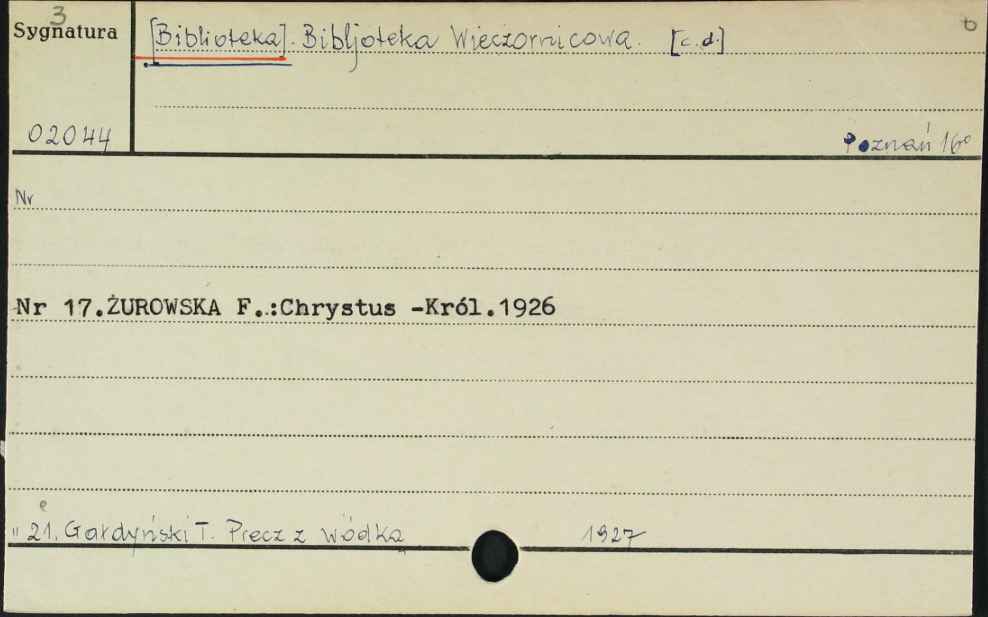 3
6
Sygnatura
[Biblioteka]. Bibljoteka Wieczornicowa. [c.d.]
02044
Poznań 16°
Nr
Nr 17.ŻUROWSKA F.:Chrystus -Król.1926
e
" 21. Gardyński T. Precz z wódką 1927